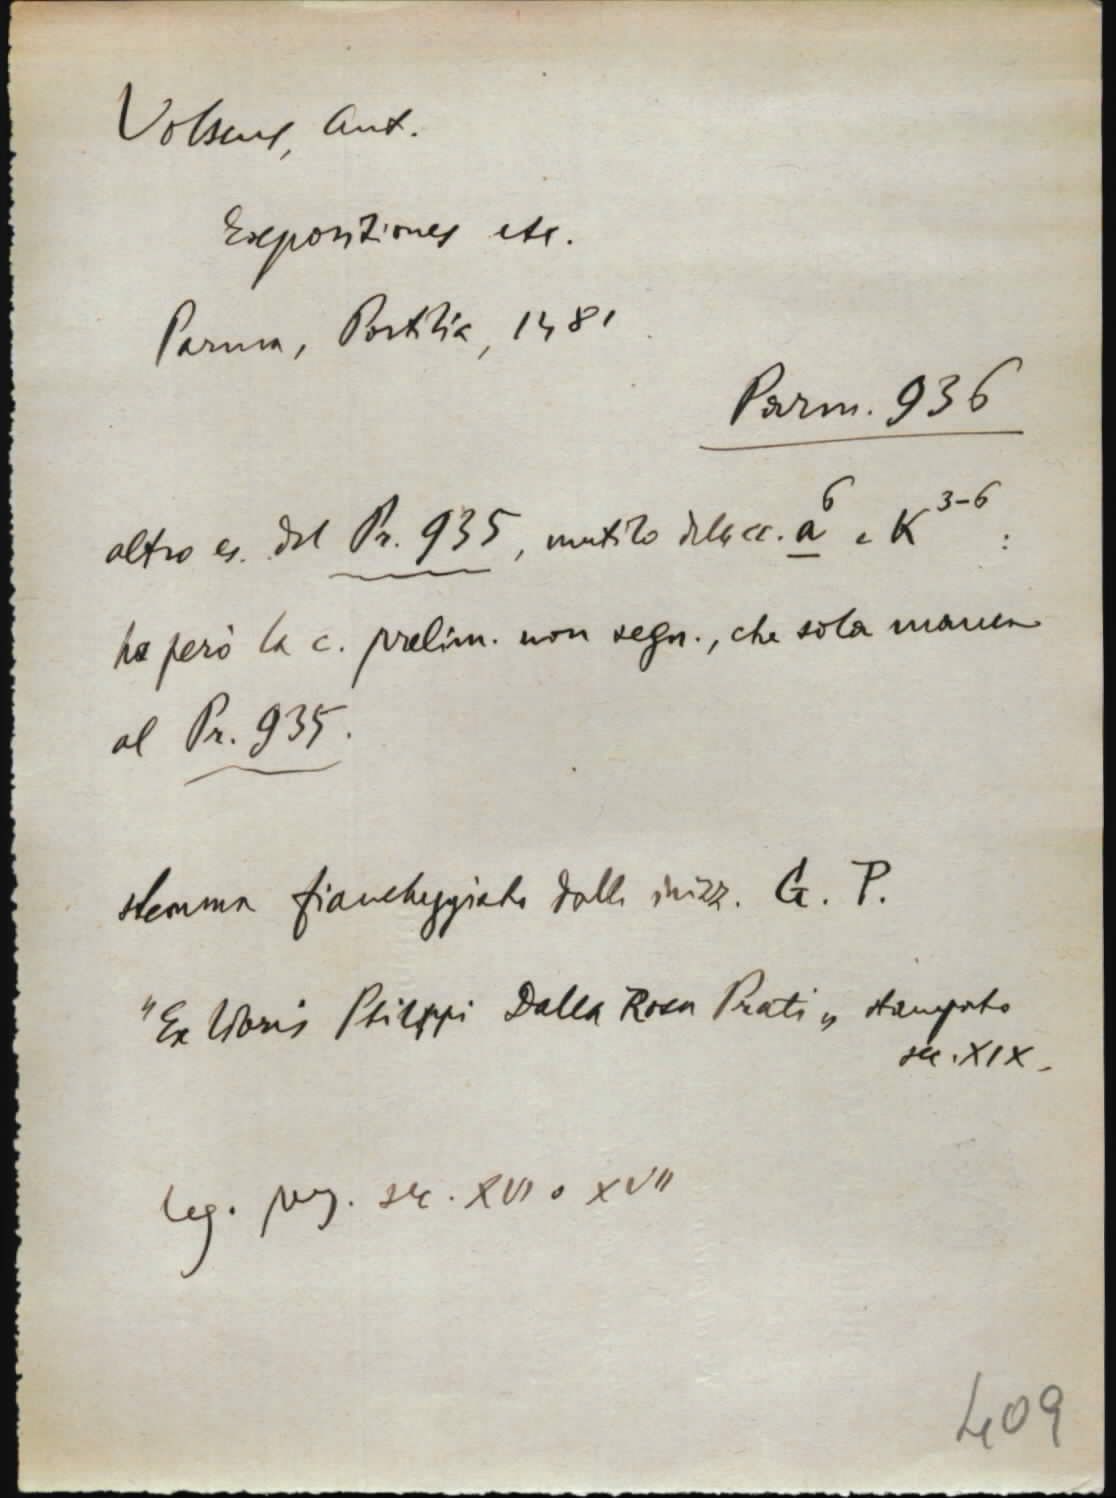 Volscus, Ant.
Expositiones etc.
Parma, Portilia, 1481
Parm. 936
altro es. del Pr. 935, mutilo delle cc. a⁶ e K³⁻⁶ :
ha però la c. prelim. non segn., che sola manca
al Pr. 935.
stemma fiancheggiato dalle inizz. G. P.
"Ex libris Philippi Dalla Rosa Prati„ stampato
sec. XIX.
leg. perg. sec. XVI o XVII
409